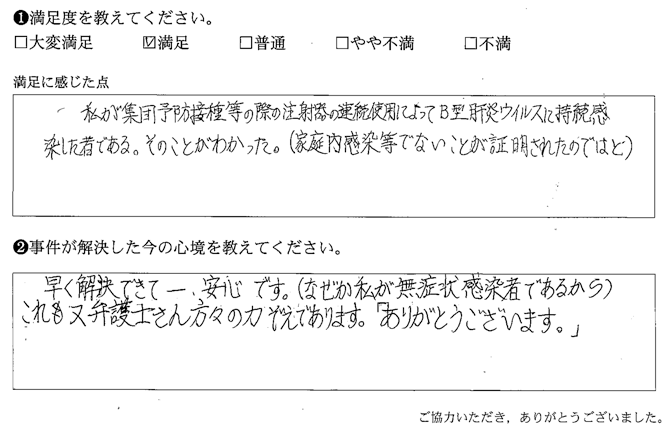 ❶満足度を教えてください。
□大変満足 ☑満足 □普通 □やや不満 □不満
満足に感じた点
私が集団予防接種等の際の注射器の連続使用によってB型肝炎ウイルスに持続感
染した者である。そのことがわかった。(家庭内感染等でないことが証明されたのではと)
❷事件が解決した今の心境を教えてください。
早く解決できて一、安心です。(なぜか私が無症状感染者であるから)
これも又弁護士さん方々の力ぞえであります。「ありがとうございます。」
ご協力いただき，ありがとうございました。